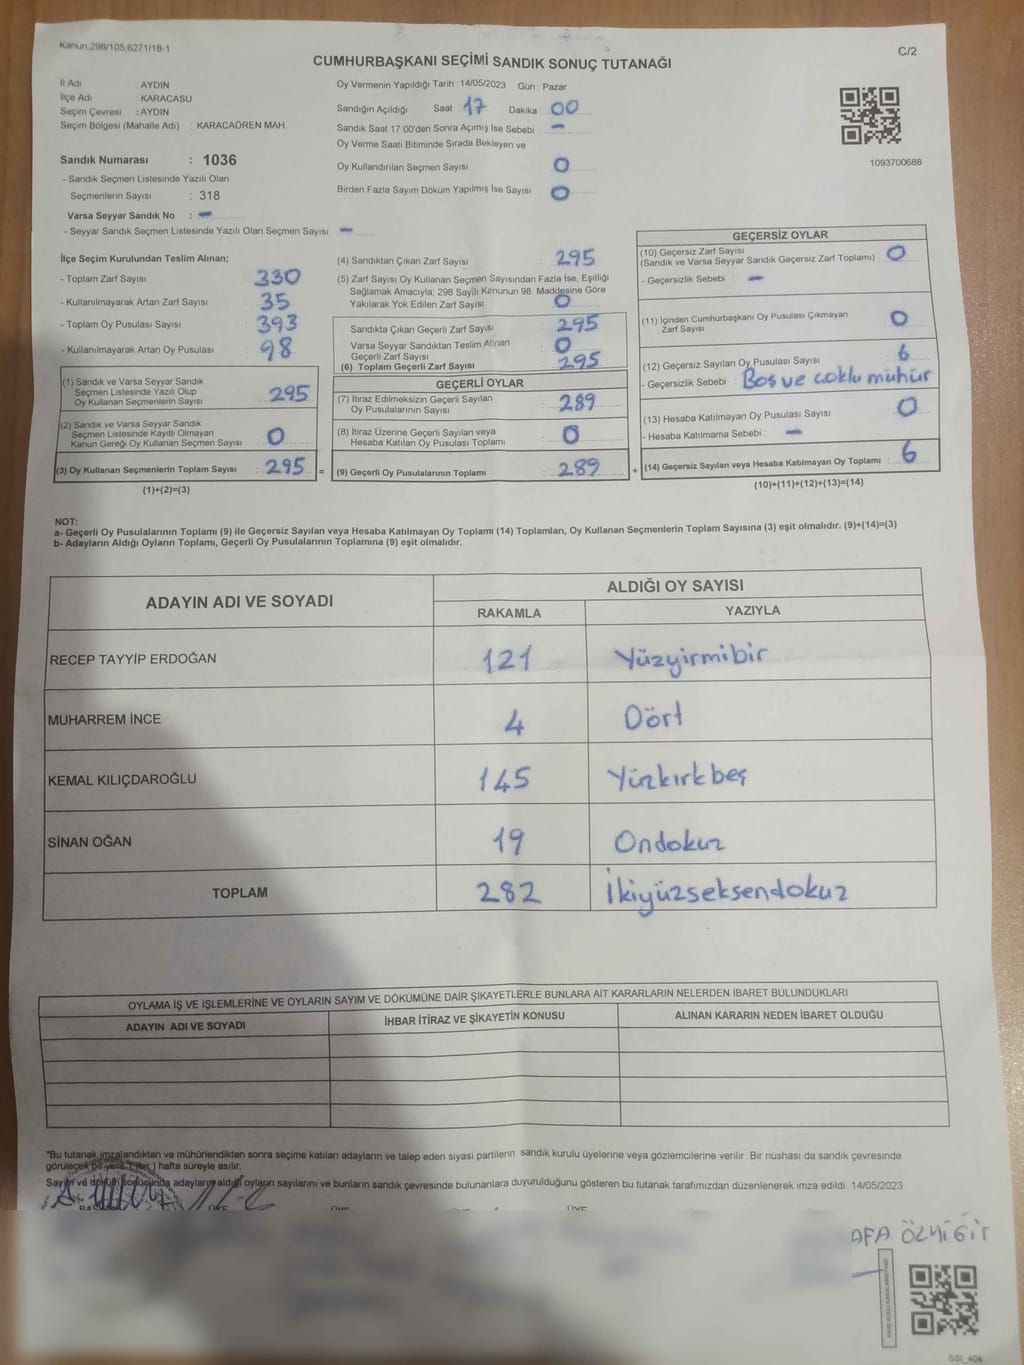 Kanun,298/105,6271/18-1
C/2
CUMHURBAŞKANI SEÇİMİ SANDIK SONUÇ TUTANAĞI
İl Adı AYDIN
İlçe Adı KARACASU
Seçim Çevresi : AYDIN
Seçim Bölgesi (Mahalle Adı) : KARACAÖREN MAH.
Oy Vermenin Yapıldığı Tarih : 14/05/2023 Gün : Pazar
Sandığın Açıldığı Saat 17 Dakika : 00
Sandık Saat 17:00'den Sonra Açımış İse Sebebi : -
Oy Verme Saati Bitiminde Sırada Bekleyen ve
Oy Kullandırılan Seçmen Sayısı : 0
Birden Fazla Sayım Döküm Yapılmış İse Sayısı : 0
1093700688
Sandık Numarası : 1036
- Sandık Seçmen Listesinde Yazılı Olan
Seçmenlerin Sayısı : 318
Varsa Seyyar Sandık No : -
- Seyyar Sandık Seçmen Listesinde Yazılı Olan Seçmen Sayısı : -
İlçe Seçim Kurulundan Teslim Alınan;
- Toplam Zarf Sayısı : 330
- Kullanılmayarak Artan Zarf Sayısı : 35
- Toplam Oy Pusulası Sayısı : 393
- Kullanılmayarak Artan Oy Pusulası : 98
(1) Sandık ve Varsa Seyyar Sandık
Seçmen Listesinde Yazılı Olup
Oy Kullanan Seçmenlerin Sayısı : 295
(2) Sandık ve Varsa Seyyar Sandık
Seçmen Listesinde Kayıtlı Olmayan
Kanun Gereği Oy Kullanan Seçmen Sayısı : 0
(3) Oy Kullanan Seçmenlerin Toplam Sayısı : 295 =
(1)+(2)=(3)
(4) Sandıktan Çıkan Zarf Sayısı : 295
(5) Zarf Sayısı Oy Kullanan Seçmen Sayısından Fazla İse, Eşitliği
Sağlamak Amacıyla, 298 Sayılı Kanunun 98. Maddesine Göre
Yakılarak Yok Edilen Zarf Sayısı : 0
Sandıkta Çıkan Geçerli Zarf Sayısı : 295
Varsa Seyyar Sandıktan Teslim Alınan
Geçerli Zarf Sayısı : 0
(6) Toplam Geçerli Zarf Sayısı : 295
GEÇERLİ OYLAR
(7) İtiraz Edilmeksizin Geçerli Sayılan
Oy Pusulasının Sayısı : 289
(8) İtiraz Üzerine Geçerli Sayılan veya
Hesaba Katılan Oy Pusulası Toplamı : 0
(9) Geçerli Oy Pusulalarının Toplamı : 289 +
GEÇERSİZ OYLAR
(10) Geçersiz Zarf Sayısı
(Sandık ve Varsa Seyyar Sandık Geçersiz Zarf Toplamı) : 0
- Geçersizlik Sebebi : -
(11) İçinden Cumhurbaşkanı Oy Pusulası Çıkmayan
Zarf Sayısı : 0
(12) Geçersiz Sayılan Oy Pusulası Sayısı : 6
- Geçersizlik Sebebi : Boş ve çoklu mühür
(13) Hesaba Katılmayan Oy Pusulası Sayısı : 0
- Hesaba Katılmama Sebebi : -
(14) Geçersiz Sayılan veya Hesaba Katılmayan Oy Toplamı : 6
(10)+(11)+(12)+(13)=(14)
NOT:
a- Geçerli Oy Pusulalarının Toplamı (9) ile Geçersiz Sayılan veya Hesaba Katılmayan Oy Toplamı (14) Toplamları, Oy Kullanan Seçmenlerin Toplam Sayısına (3) eşit olmalıdır. (9)+(14)=(3)
b- Adayların Aldığı Oyların Toplamı, Geçerli Oy Pusulalarının Toplamına (9) eşit olmalıdır.
ADAYIN ADI VE SOYADI ALDIĞI OY SAYISI
RAKAMLA YAZIYLA
RECEP TAYYİP ERDOĞAN 121 Yüzyirmibir
MUHARREM İNCE 4 Dört
KEMAL KILIÇDAROĞLU 145 Yüzkırkbeş
SİNAN OĞAN 19 Ondokuz
TOPLAM 282 İkiyüzseksendokuz
OYLAMA İŞ VE İŞLEMLERİNE VE OYLARIN SAYIM VE DÖKÜMÜNE DAİR ŞİKAYETLERLE BUNLARA AİT KARARLARIN NELERDEN İBARET BULUNDUKLARI
ADAYIN ADI VE SOYADI İHBAR İTİRAZ VE ŞİKAYETİN KONUSU ALINAN KARARIN NEDEN İBARET OLDUĞU
*Bu tutanak imzalandıktan ve mühürlendikten sonra seçime katılan adayların ve talep eden siyasi partilerin sandık kurulu üyelerine veya gözlemcilerine verilir. Bir nüshası da sandık çevresinde
görülecek bir yere 1 (bir) hafta süreyle asılır.
Sayım ve döküm sonucunda adayların aldığı oyların sayılarını ve bunların sandık çevresinde bulunanlara duyurulduğunu gösteren bu tutanak tarafımızdan düzenlenerek imza edildi. 14/05/2023
AFA ÖZYİĞİT